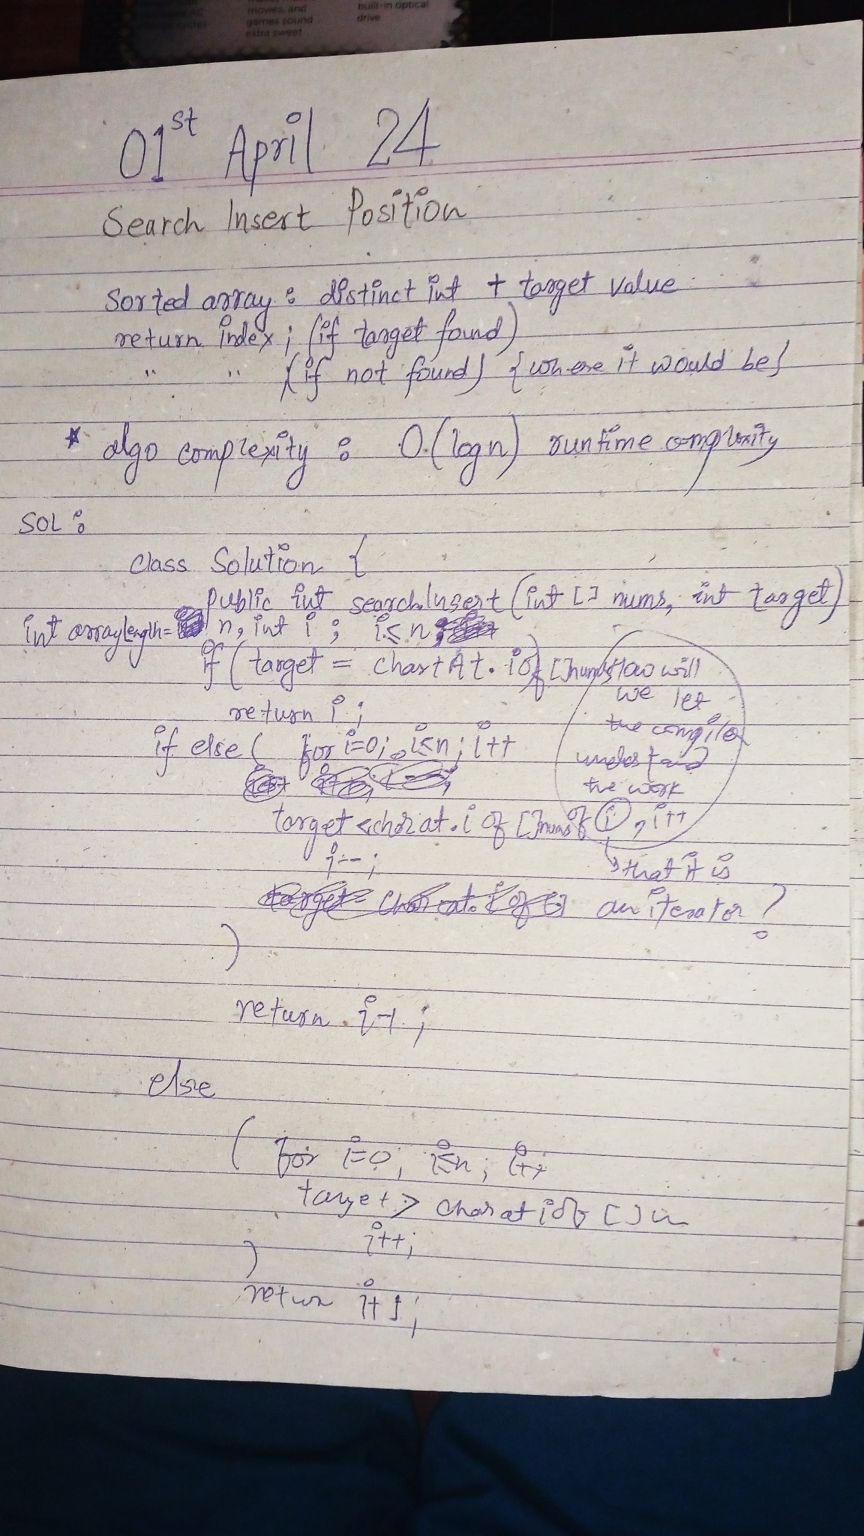 movies, and
games sound
extra sweet
built-in optical
drive
01st April 24
Search Insert Position
Sorted array : distinct int + target value
return index ; (if target found)
" " (if not found) {where it would be}
* algo complexity : O.(log n) runtime complexity
SOL :
class Solution {
public int searchInsert (int [] nums, int target)
int arraylength = n, int i ; i≤n;
if (target = chartAt. i of []nums
return i ;
How will
we let
the compiler
understand
the work
if else ( for i=0; i≤n; i++
target < charat. i of []nums of i , i++
i--;
that it is
an iterator ?
)
return i-1 ;
else
( for i=0, i≤n; i++
target > charat i of []n
i++;
)
return i+1;